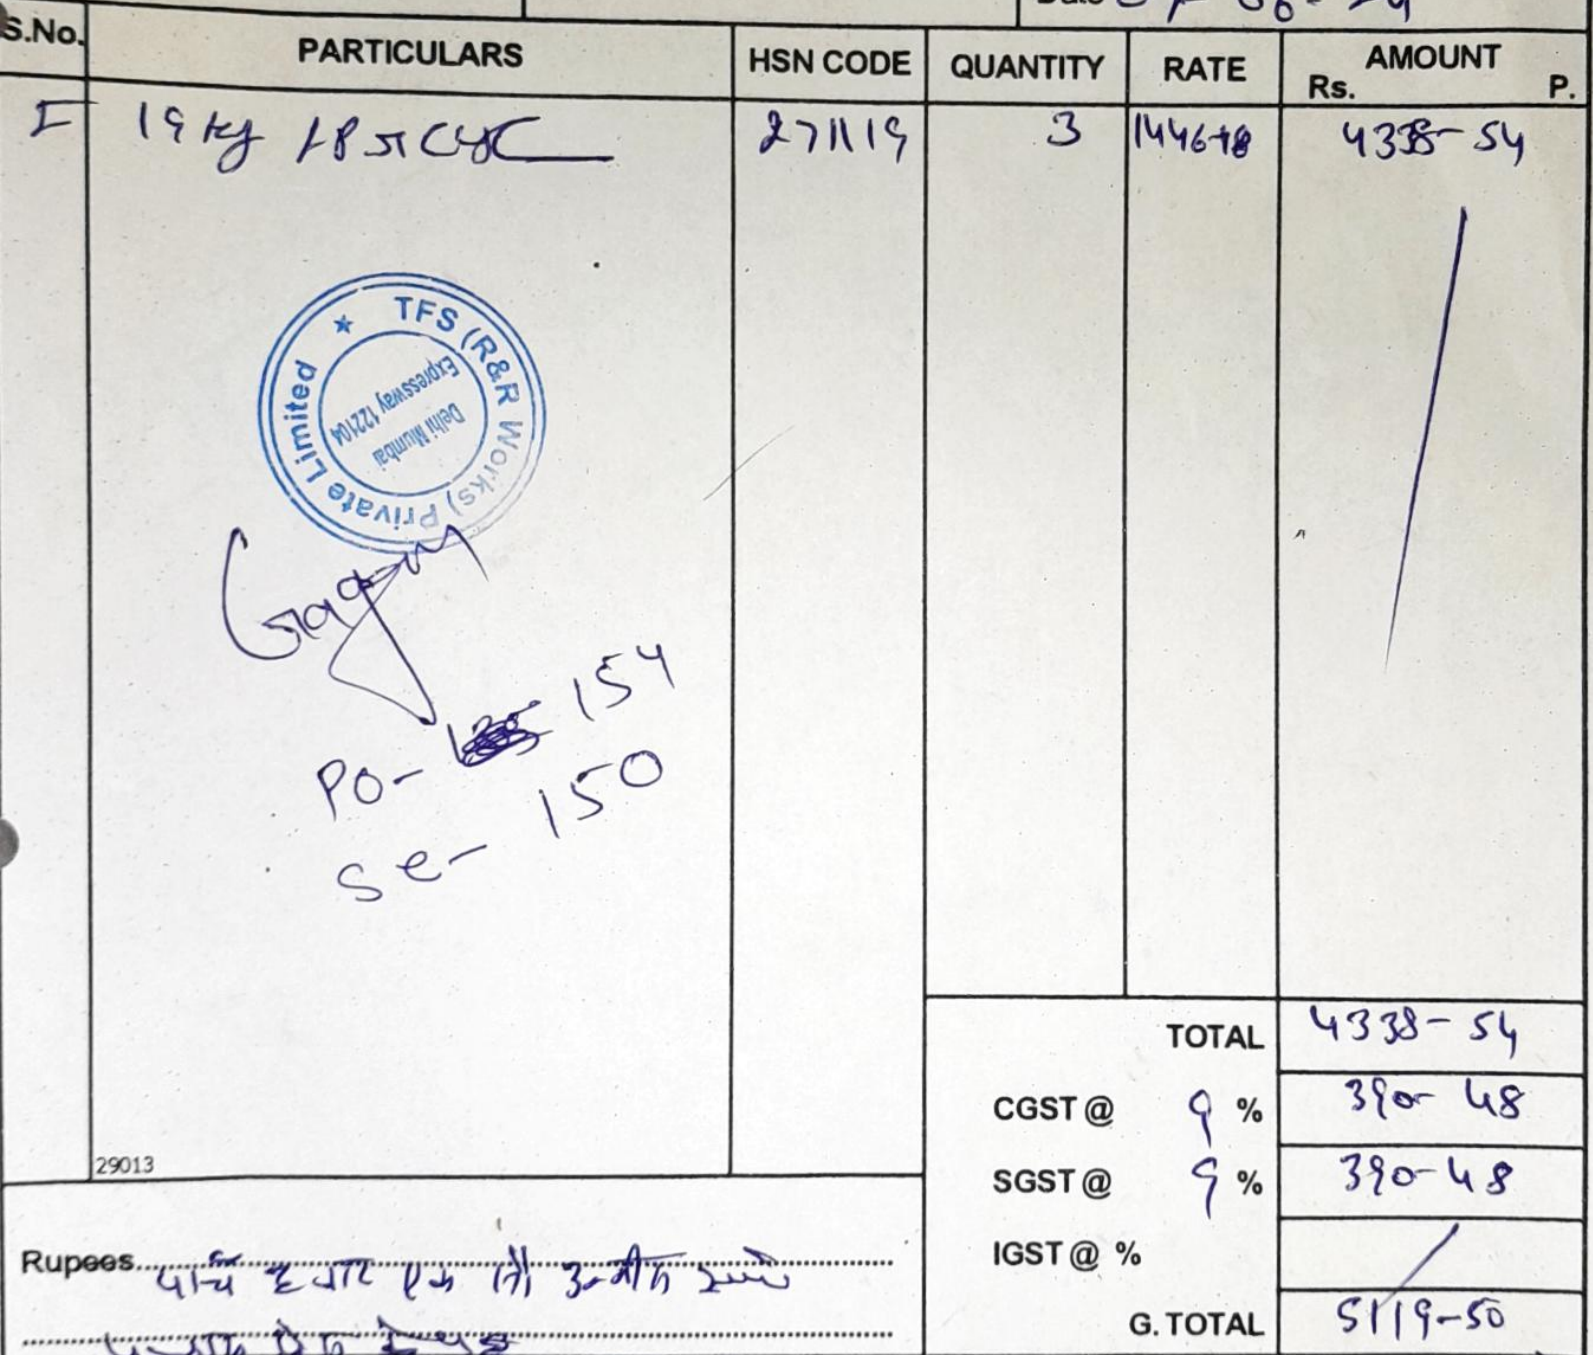 Date
S.No. PARTICULARS HSN CODE QUANTITY RATE AMOUNT Rs. P.
1 19 kg LPG Cyc 271119 3 1446-18 4338-54
TFS (R&R Works) Private Limited
Delhi Mumbai
Expressway 122104
Gagan
PO- 154
Se- 150
TOTAL 4338-54
CGST @ 9 % 390-48
SGST @ 9 % 390-48
29013
IGST @ %
Rupees पांच हजार एक सौ उन्नीस रुपये
G. TOTAL 5119-50